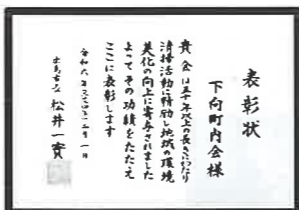 表彰状
下向町内会様
貴会は五十年以上の長きにわたり
清掃活動に精励し地域の環境
美化の向上に寄与されました
よってその功績をたたえ
ここに表彰します
令和六年 月一日
松井一實